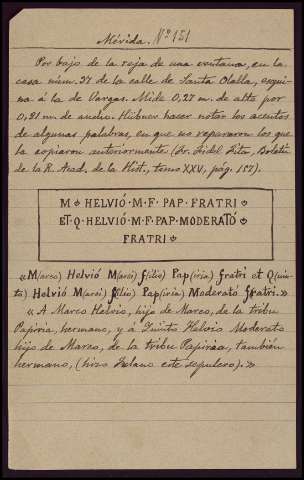 Mérida. Nº 151
Por bajo de la reja de una ventana, en la
casa núm. 37 de la calle de Santa Olalla, esqui-
na á la de Vargas. Mide 0,27 m. de alto por
0,91 m. de ancho. Hübner hacer notar los acentos
de algunas palabras, en que no repararon los que
la copiaron anteriormente (Sr. Fidel Fita, Boletín
de la R. Acad. de la Hist., tomo XXV, pág. 157).
M HELVIÓ·M·F·PAP·FRATRI
ET·Q·HELVIÓ·M·F·PAP·MODERATÓ
FRATRI
«M(arco) Helvió M(arci) f(ilio) Pap(iria) fratri et Q(uin-
to) Helvió M(arci) f(ilio) Pap(iria) Moderato fratri.»
«A Marco Helvio, hijo de Marco, de la tribu
Papiria, hermano, y á Quinto Helvio Moderato
hijo de Marco, de la tribu Papiria, también
hermano, (hizo Fulano este sepulcro).»